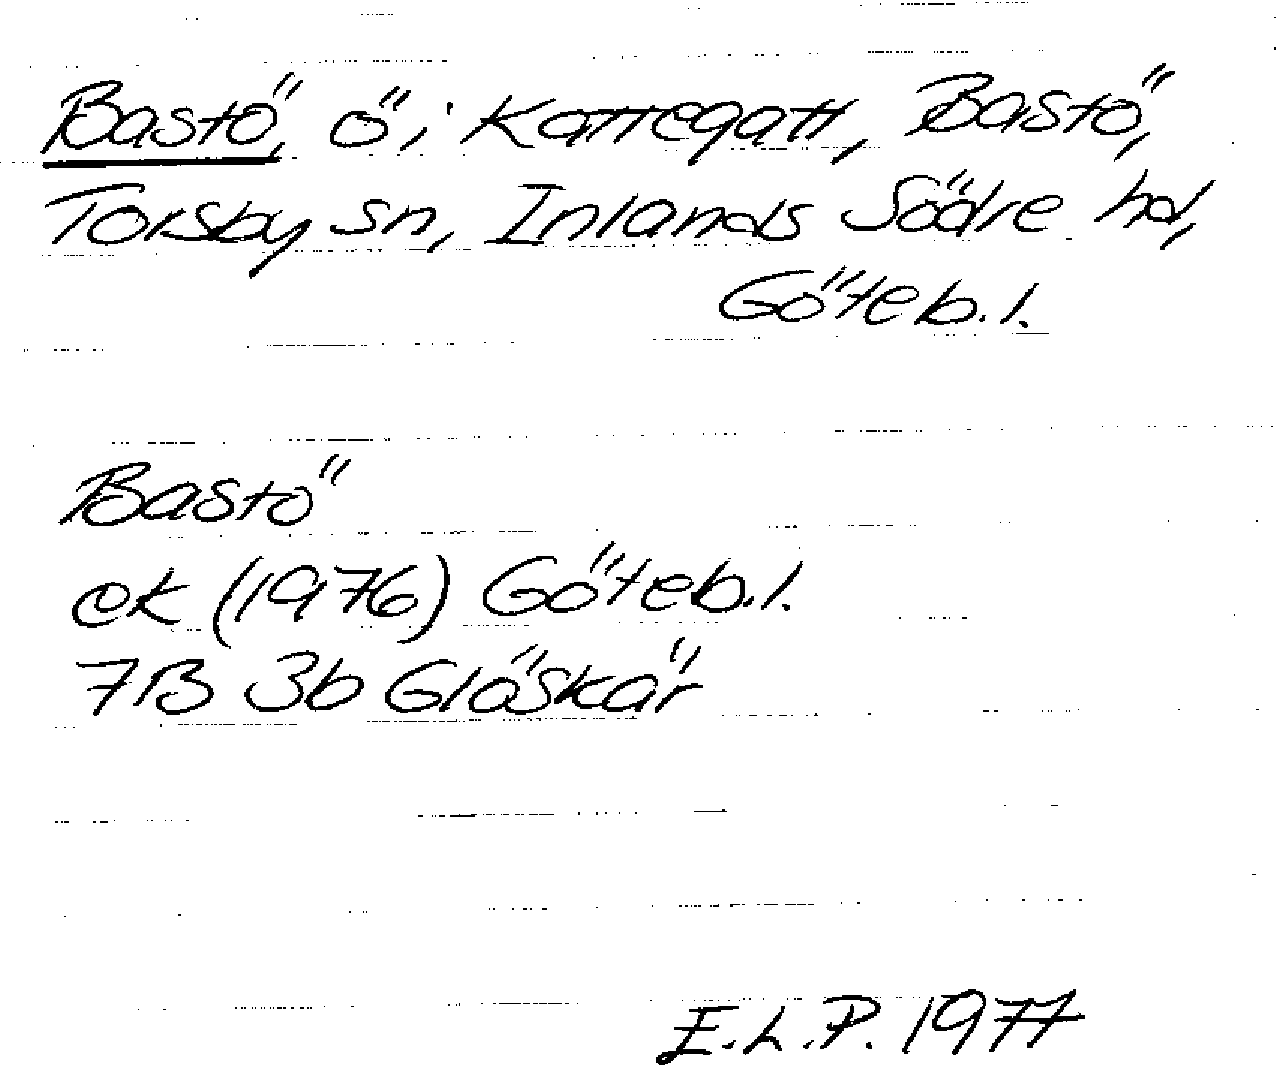 Bastö, ö, i Kattegatt, Bastö,
Torsby sn, Inlands Södre hd,
Göteb. l.
Bastö
ek (1976) Göteb. l.
7B 3b Glöskär
E. L. P. 1977